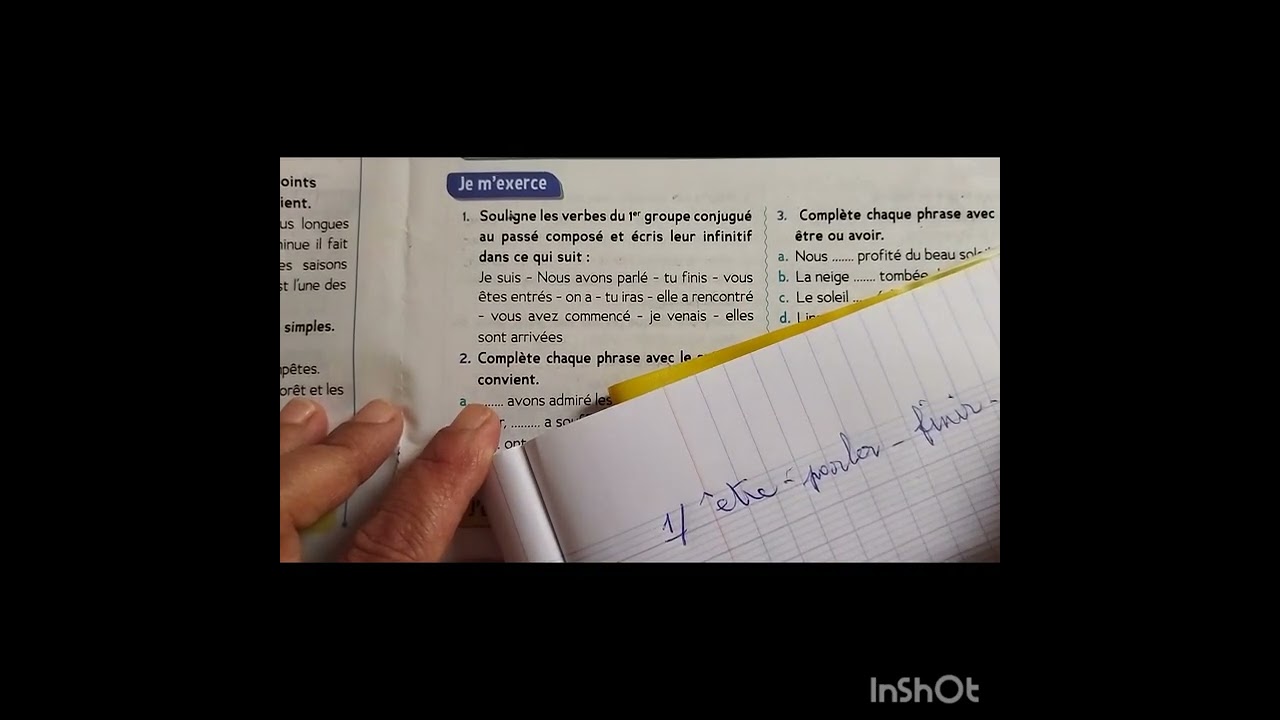 oints
ient.
us longues
inue il fait
es saisons
st l'une des
simples.
pêtes.
orêt et les
Je m'exerce
1. Souligne les verbes du 1er groupe conjugué
au passé composé et écris leur infinitif
dans ce qui suit :
Je suis - Nous avons parlé - tu finis - vous
êtes entrés - on a - tu iras - elle a rencontré
- vous avez commencé - je venais - elles
sont arrivées
2. Complète chaque phrase avec le
convient.
a. ...... avons admiré les
r, ......... a souf
ont
3. Complète chaque phrase avec
être ou avoir.
a. Nous ....... profité du beau sol
b. La neige ....... tombée
c. Le soleil ...
d.
1/ être - parler - finir -
InShOt